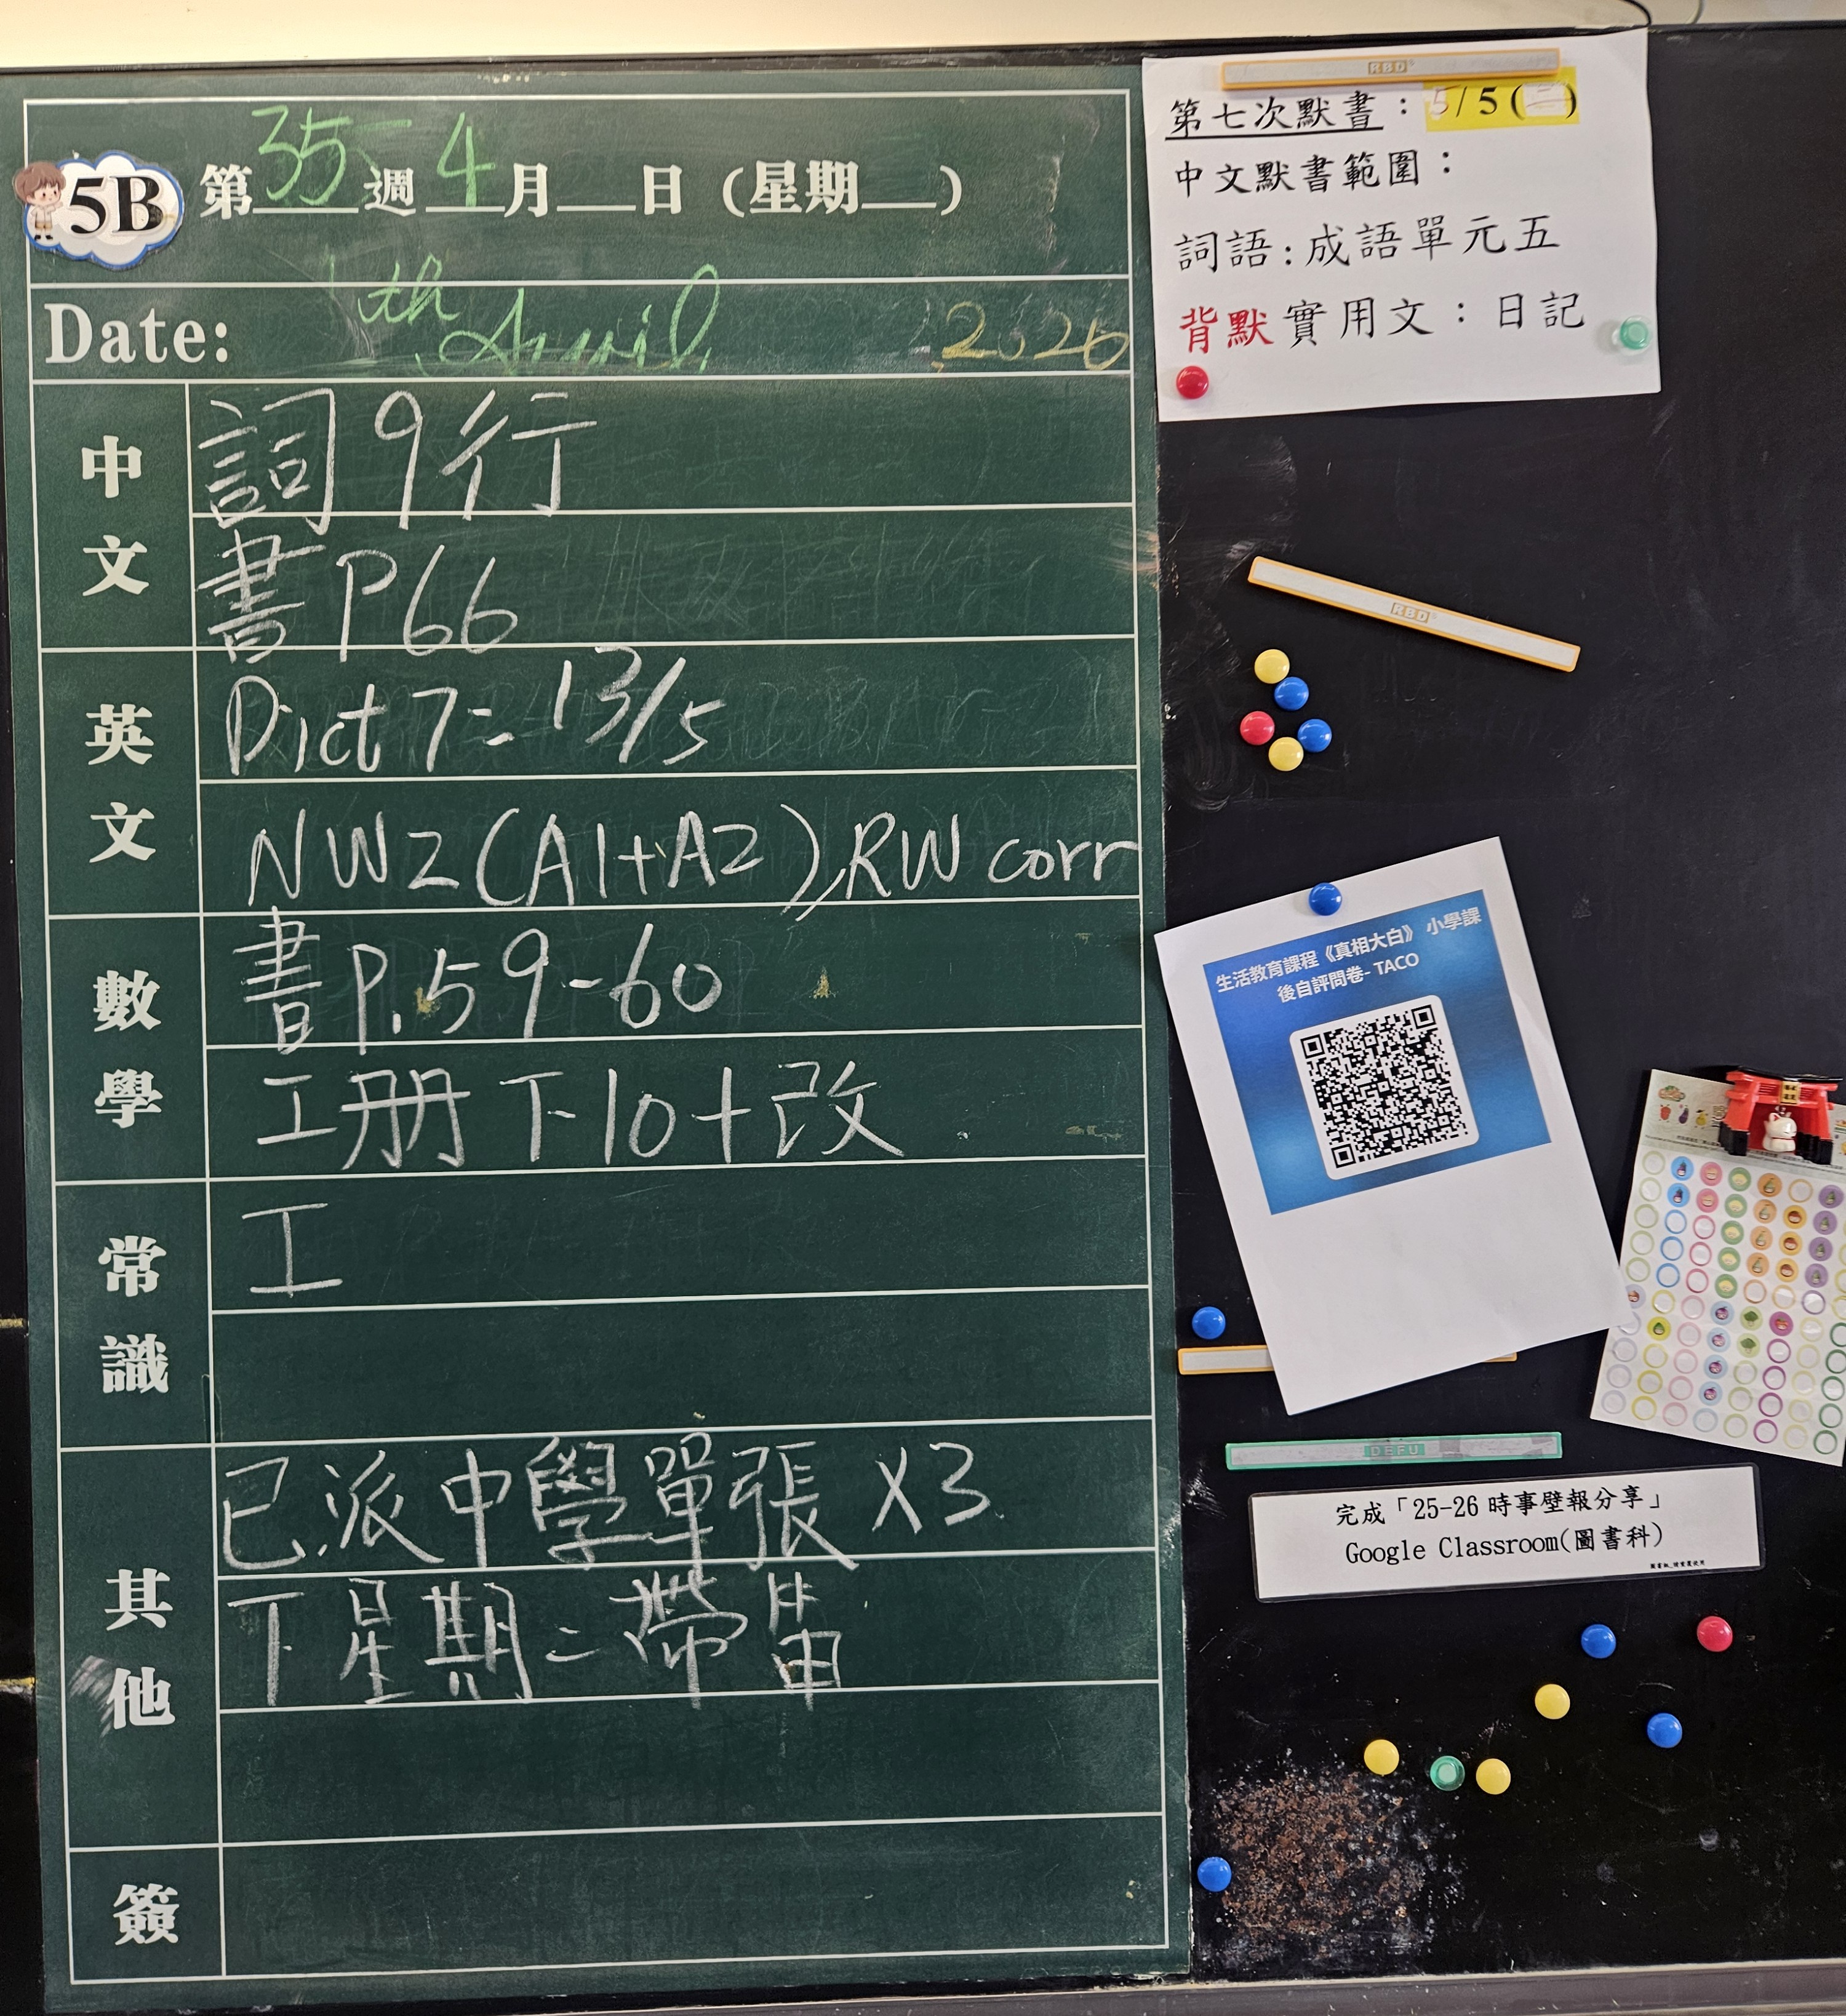 5B 第35週 4月__日 (星期__)
Date: th April 2026
中文
詞9行
書P66
英文
Dict 7 = 13/5
NW2 (A1+A2), RW corr
數學
書P.59-60
工册下10+改
常識
工
其他
已派中學單張 X3
下星期二帶笛
簽
RBD
第七次默書：5/5(二)
中文默書範圍：
詞語：成語單元五
背默實用文：日記
RBD
生活教育課程《真相大白》 小學課
後自評問卷- TACO
DEFU
完成「25-26 時事壁報分享」
Google Classroom(圖書科)